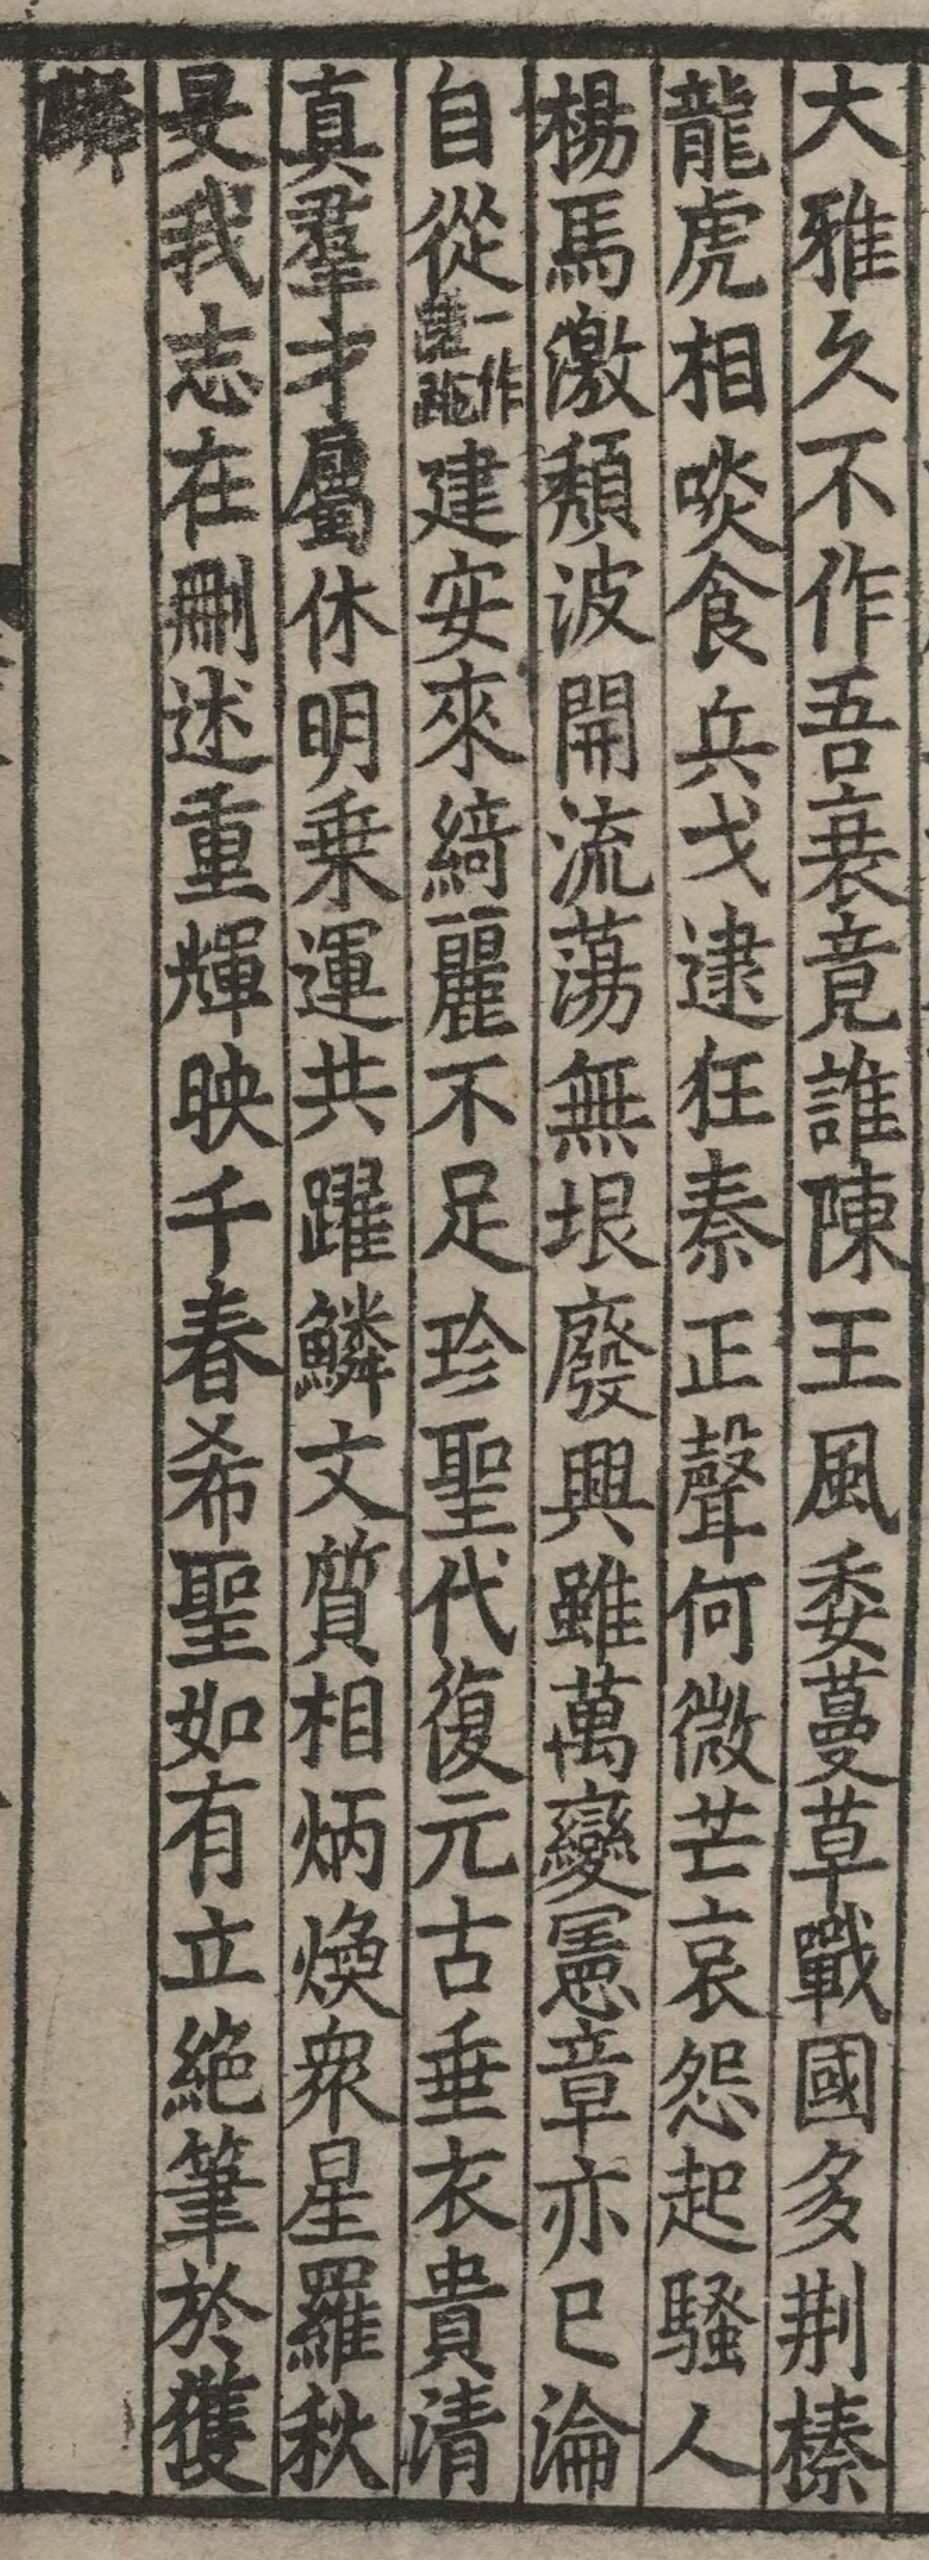 大雅久不作吾衰竟誰陳王風委蔓草戰國多荆榛
龍虎相啖食兵戈逮狂秦正聲何微茫哀怨起騷人
楊馬激頹波開流蕩無垠廢興雖萬變憲章亦已淪
自從一作建安來綺麗不足珍聖代復元古垂衣貴清
真羣才屬休明乗運共躍鱗文質相炳煥衆星羅秋
旻我志在刪述重輝映千春希聖如有立絶筆於獲
麟